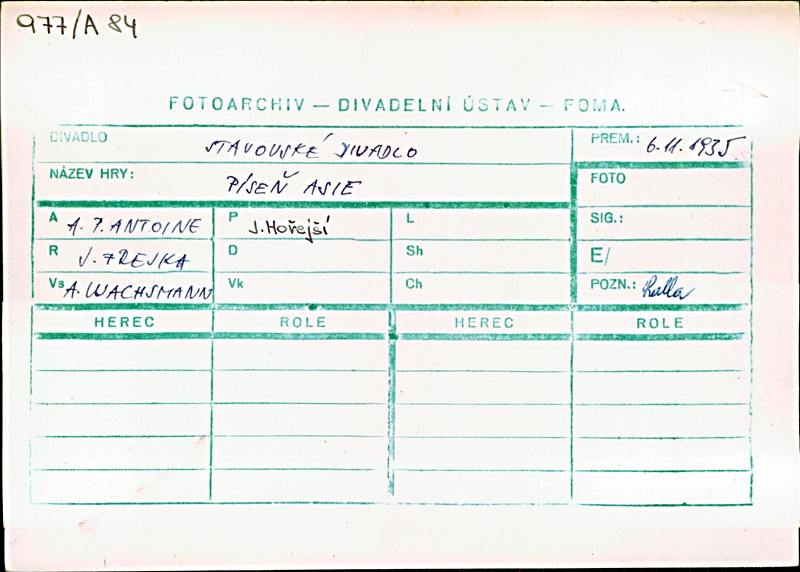 977/A 84
FOTOARCHIV — DIVADELNÍ ÚSTAV — FOMA.
DIVADLO STAVOVSKÉ DIVADLO PREM.: 6.11.1935
NÁZEV HRY: PÍSEŇ ASIE FOTO
A A. P. ANTOINE P J. Hořejší L SIG.:
R J. FREJKA D Sh E/
Vs A. WACHSMANN Vk Ch POZN.:
HEREC ROLE HEREC ROLE